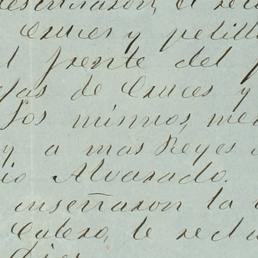 Cruces y pelill
l frente del p
as de Cruces y
Los mismos me
y a mas Reyes
io Alvarado.
enseñaron la
Calero, le recla